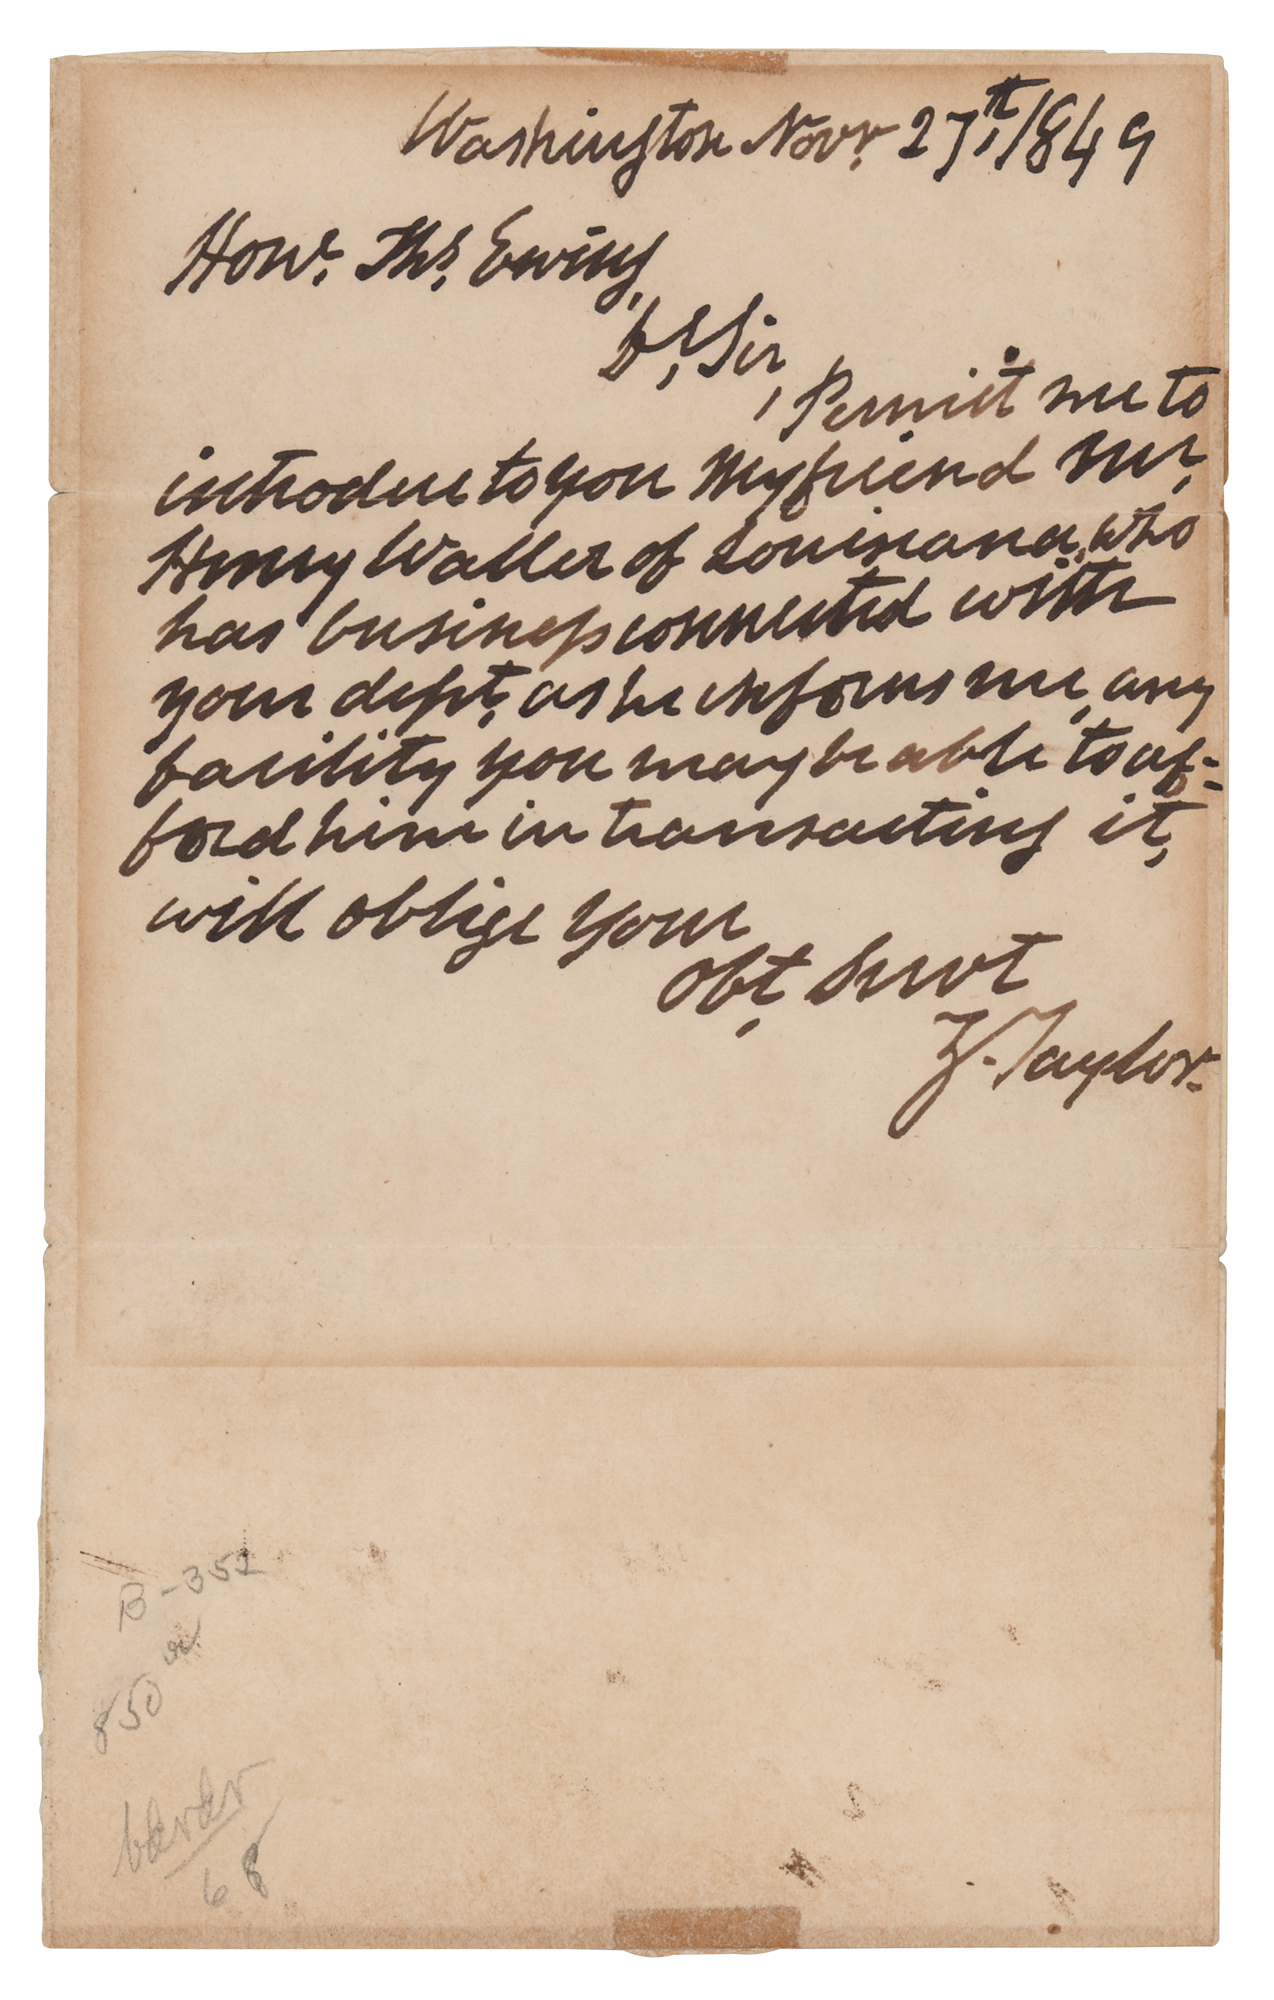 Washington Novr. 27th, 1849
Honr. Ths. Ewing,
Dr, Sir,
, Permit me to
introduce to you my friend Mr,
Henry Waller of Louisiana, who
has business connected with
your dept, as he informs me, any
facility you may be able to af-
ford him in transacting it,
will oblige your
Obt, Servt
Z. Taylor.
B-352
850 00
68